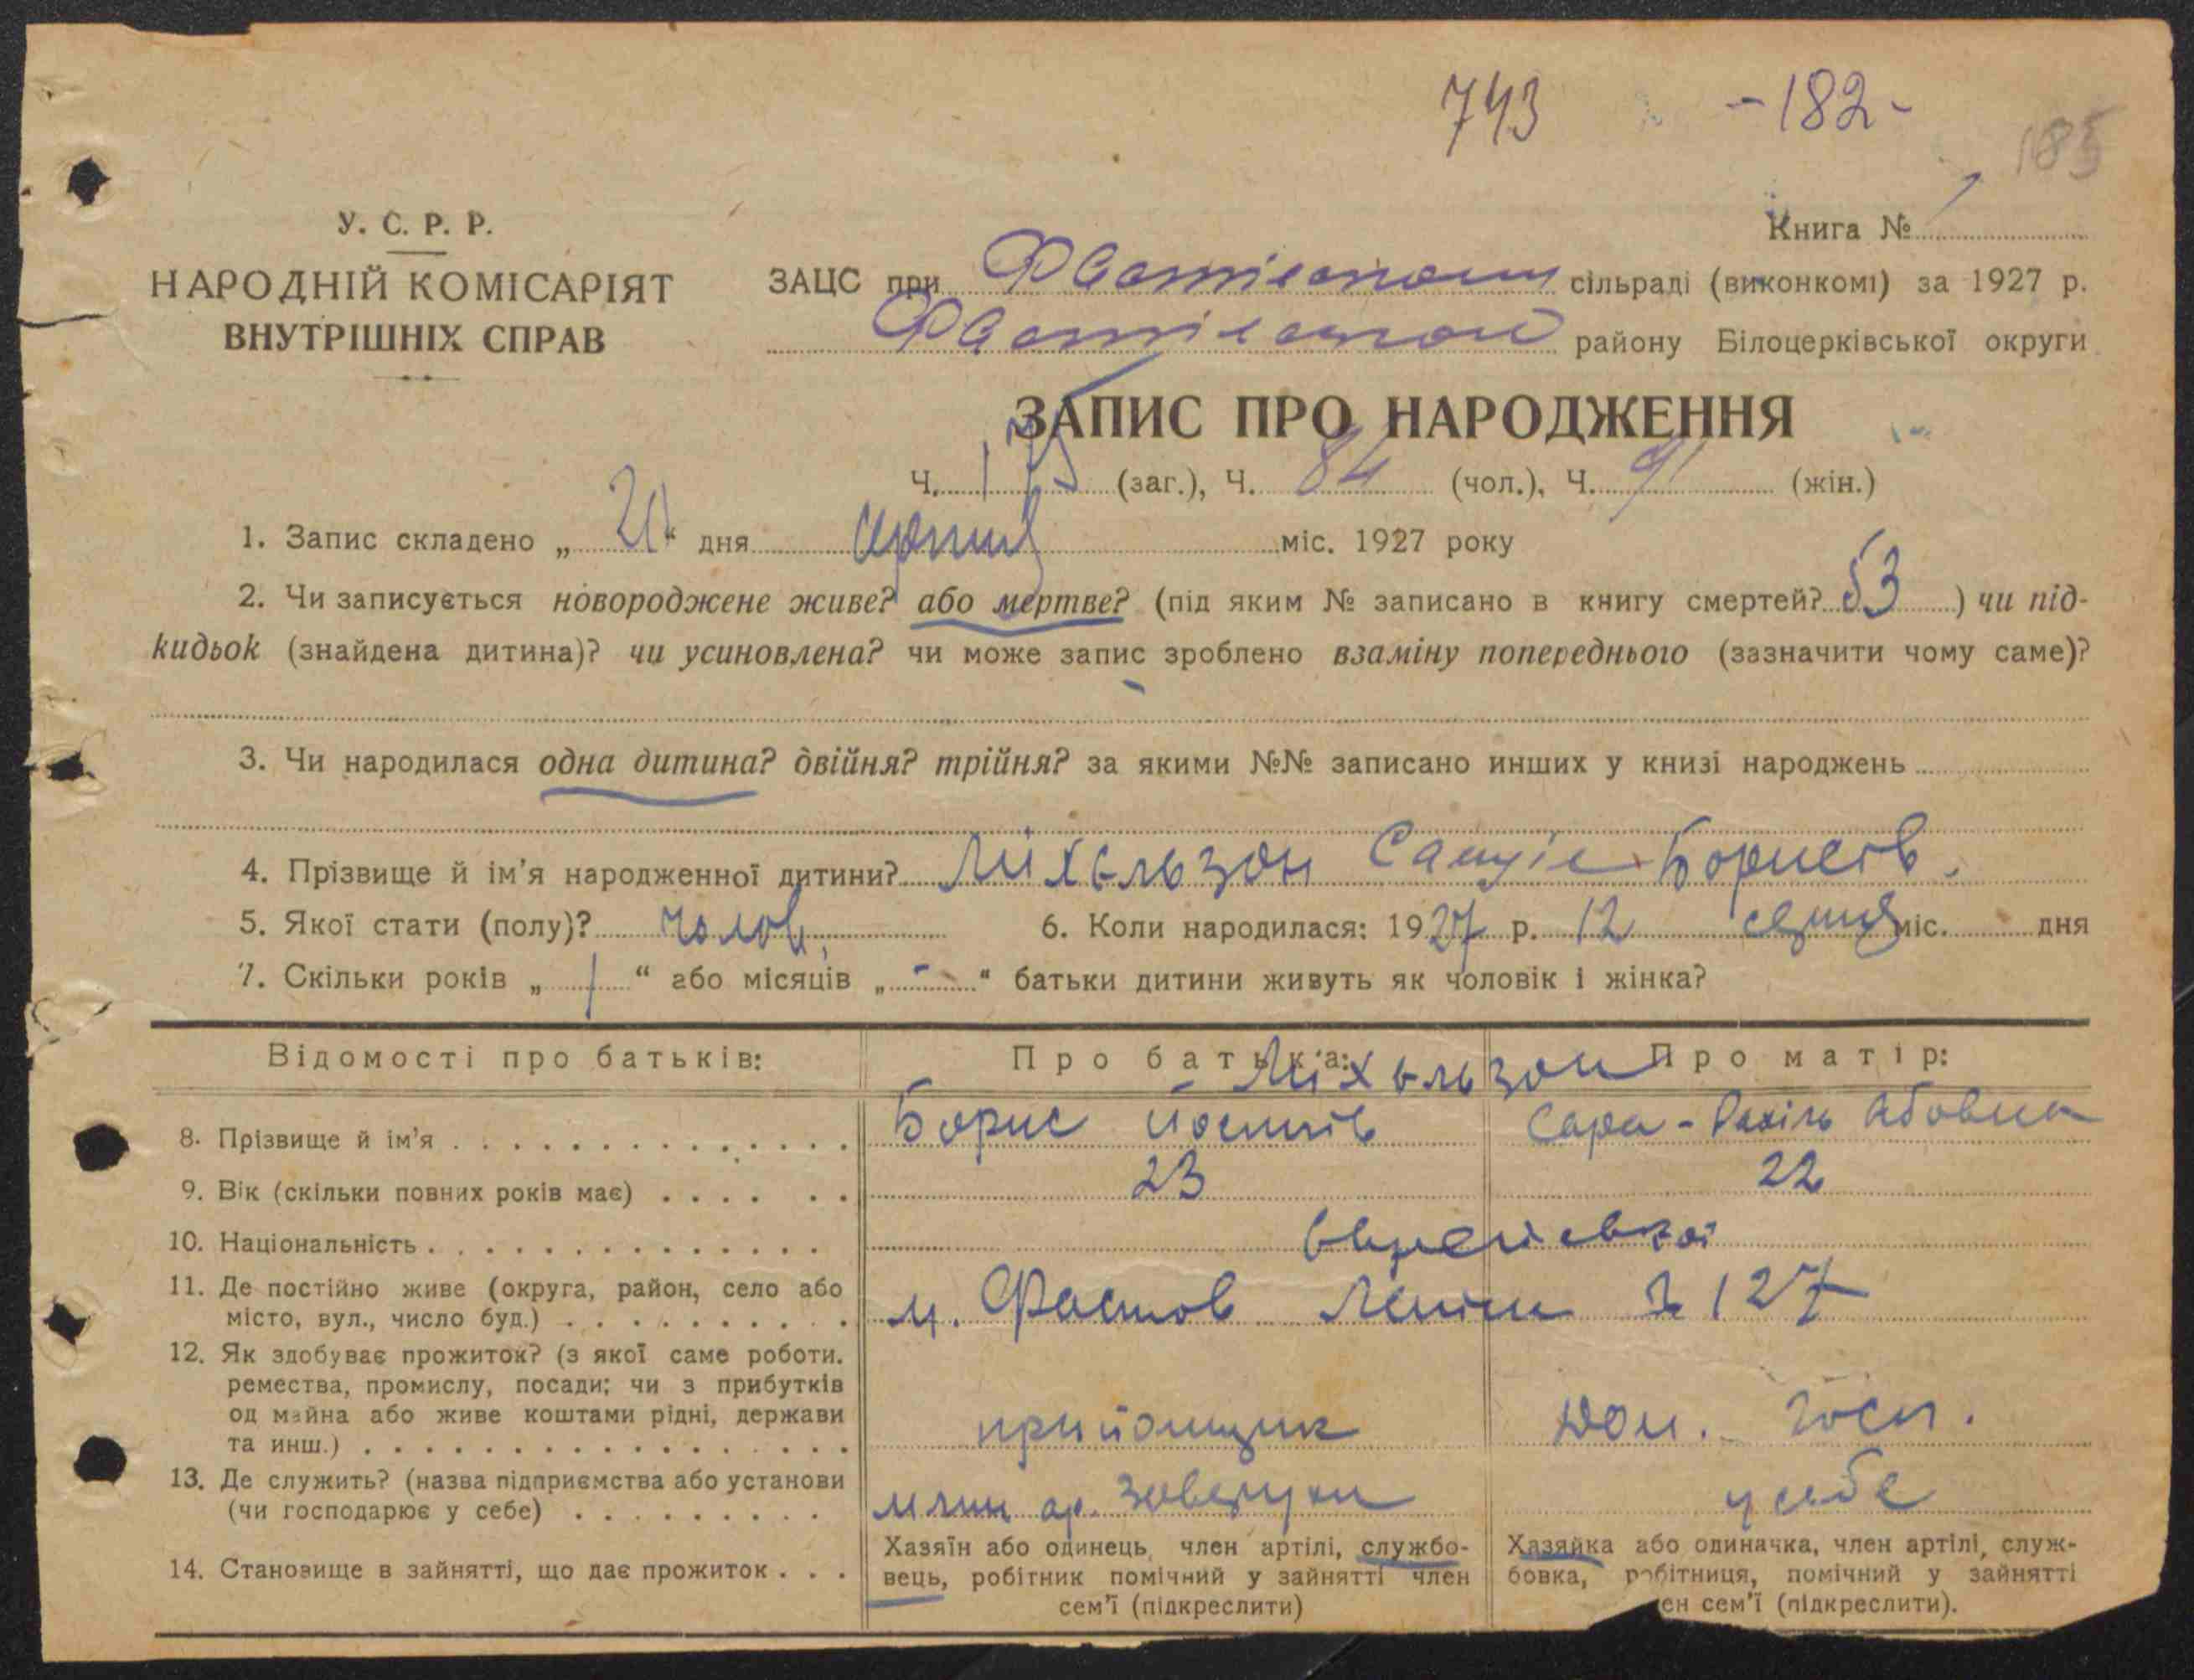 743 -182- 185
Книга № 1
У. С. Р. Р.
НАРОДНІЙ КОМІСАРІЯТ
ВНУТРІШНІХ СПРАВ
ЗАЦС при сільраді (виконкомі) за 1927 р.
району Білоцерківської округи
ЗАПИС ПРО НАРОДЖЕННЯ
Ч. 175 (заг.), Ч. 84 (чол.), Ч. 91 (жін.)
1. Запис складено „ “ дня серпня міс. 1927 року
2. Чи записується новороджене живе? або мертве? (під яким № записано в книгу смертей? 53 ) чи під-
кидьок (знайдена дитина)? чи усиновлена? чи може запис зроблено взаміну попереднього (зазначити чому саме)?
3. Чи народилася одна дитина? двійня? трійня? за якими №№ записано инших у книзі народжень
4. Прізвище й ім’я народженної дитини? Міхельзон Борисів.
5. Якої стати (полу)? чолов. 6. Коли народилася: 1927 р. 12 серпня міс. дня
7. Скільки років „ 1 “ або місяців „ - “ батьки дитини живуть як чоловік і жінка?
Відомості про батьків: Про батька: Про матір:
Міхельзон
8. Прізвище й ім’я Борис Йосипів Сара-Рахіль Абовна
9. Вік (скільки повних років має) 23 22
10. Національність еврейської
11. Де постійно живе (округа, район, село або
місто, вул., число буд.) м. Фастов Леніна № 127
12. Як здобуває прожиток? (з якої саме роботи.
ремества, промислу, посади; чи з прибутків
од майна або живе коштами рідні, держави
та инш.) прийомщик дом. госп.
13. Де служить? (назва підприємства або установи
(чи господарює у себе) млин ар. у себе
14. Становище в зайнятті, що дає прожиток
Хазяїн або одинець, член артілі, службо-
вець, робітник помічний у зайнятті член
сем’ї (підкреслити)
Хазяйка або одиначка, член артілі, служ-
бовка, робітниця, помічний у зайнятті
ен сем’ї (підкреслити).